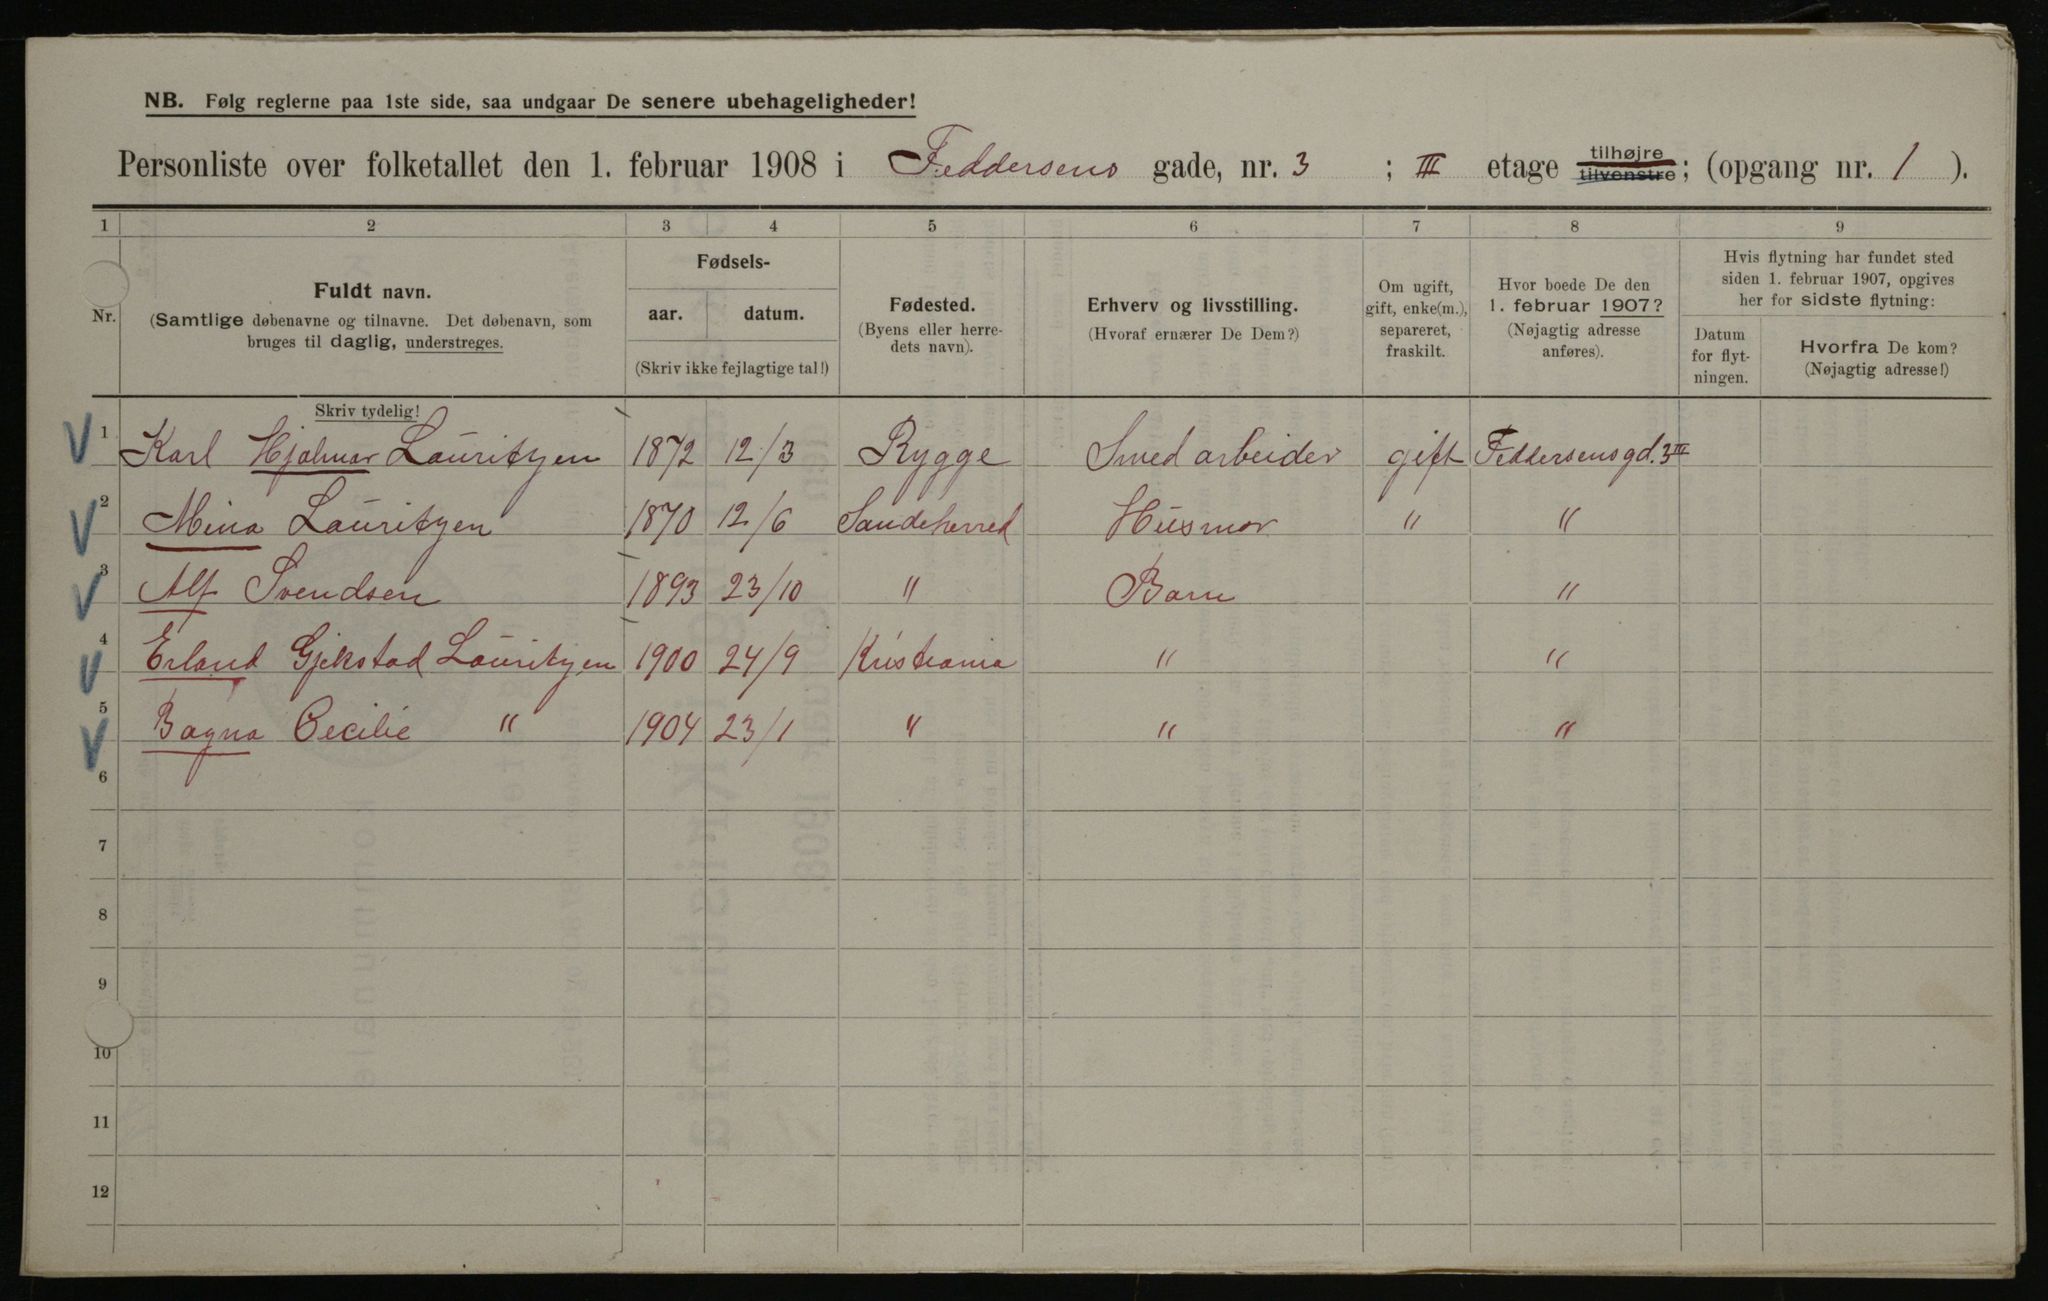 NB. Følg reglerne paa 1ste side, saa undgaar De senere ubehageligheder!
Personliste over folketallet den 1. februar 1908 i Feddersens gade, nr. 3 ; III etage tilhøjre tilvenstre; (opgang nr. 1 ).
1 2 3 4 5 6 7 8 9
Nr.
Fuldt navn.
(Samtlige døbenavne og tilnavne. Det døbenavn, som
bruges til daglig, understreges.
Fødsels-
aar. datum.
(Skriv ikke fejlagtige tal!)
Fødested.
(Byens eller herre-
dets navn).
Erhverv og livsstilling.
(Hvoraf ernærer De Dem?)
Om ugift,
gift, enke(m.),
separeret,
fraskilt.
Hvor boede De den
1. februar 1907?
(Nøjagtig adresse
anføres).
Hvis flytning har fundet sted
siden 1. februar 1907, opgives
her for sidste flytning:
Datum
for flyt-
ningen.
Hvorfra De kom?
(Nøjagtig adresse!)
Skriv tydelig!
1 Karl Hjalmar Lauritzen 1872 12/3 Rygge Smed arbeider gift Feddersensgd. 3 III
2 Mina Lauritzen 1870 12/6 Sandeherred Husmor " "
3 Alf Svendsen 1893 23/10 " Barn "
4 Erland Gjekstad Lauritzen 1900 24/9 Kristiania " "
5 Bagna Cecilie " 1904 23/1 " " "
6
7
8
9
10
11
12